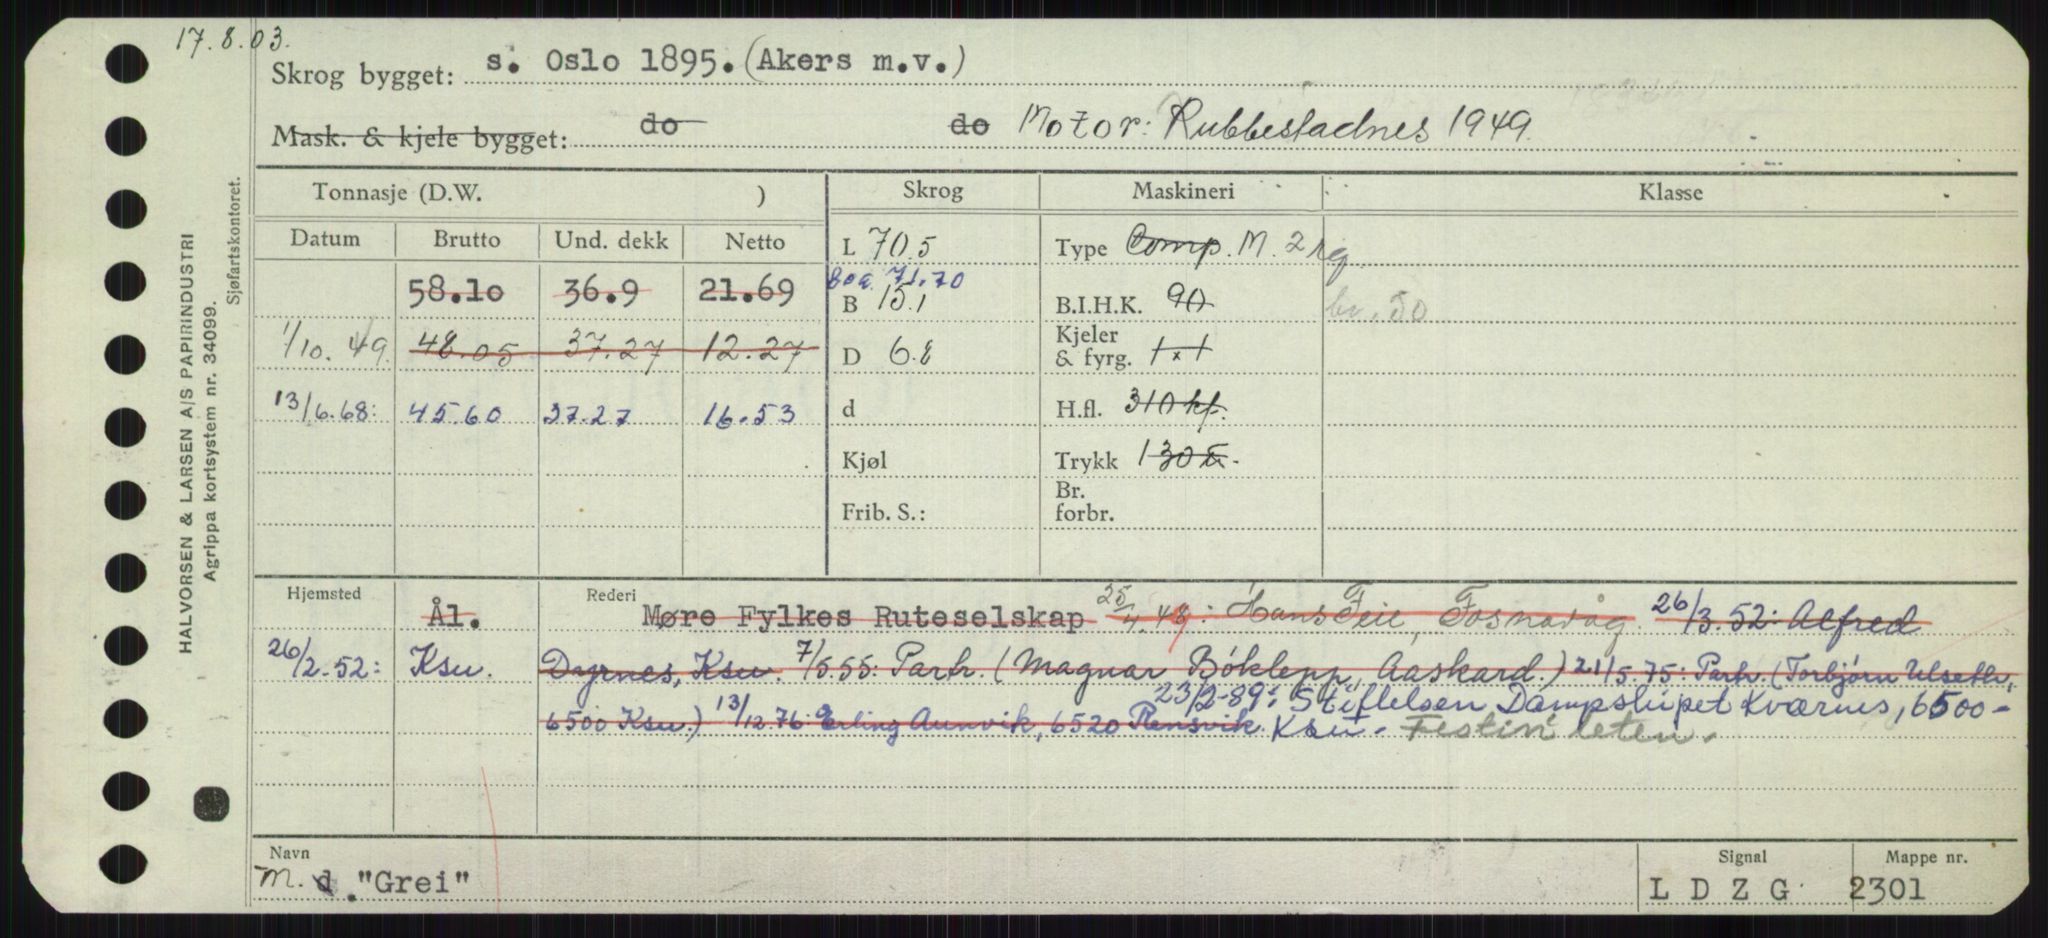 17.8.03.
Skrog bygget: s. Oslo 1895. (Akers m.v.)
Mask. & kjele bygget: do do Motor: Rubbestadnes 1949.
HALVORSEN & LARSEN A/S PAPIRINDUSTRI
Agrippa kortsystem nr. 34099.
Sjøfartskontoret.
Tonnasje (D.W. ) Skrog Maskineri Klasse
Datum Brutto Und. dekk Netto L 70.5 Type Comp. M. 2
58.10 36.9 21.69 71.70 B 15.1 B.I.H.K. 90 50
1/10.49. 48.05 37.27 12.27 D 6.8 Kjeler & fyrg. 1 x 1
13/6.68: 45.60 37.27 16.53 d H.fl. 310 kf.
Kjøl Trykk 130
Frib. S.: Br. forbr.
Hjemsted Ål. Rederi Møre Fylkes Ruteselskap 25/4.48: Hans Feie, Fosnavåg. 26/3.52: Alfred
26/2-52: Ksu. Dyrnes, Ksu. 7/5.55: Partr. (Magnar Böklepp, Aaskard.) 21/5.75: Partr. (Torbjørn Ulseth,
6500 Ksu.) 13/12.76: Erling Aunvik, 6520 Rensvik. 23/2-89: Stiftelsen Dampskipet Kværnes, 6500-
Ksu.
Navn Signal Mappe nr.
M. d. "Grei" L D Z G 2301